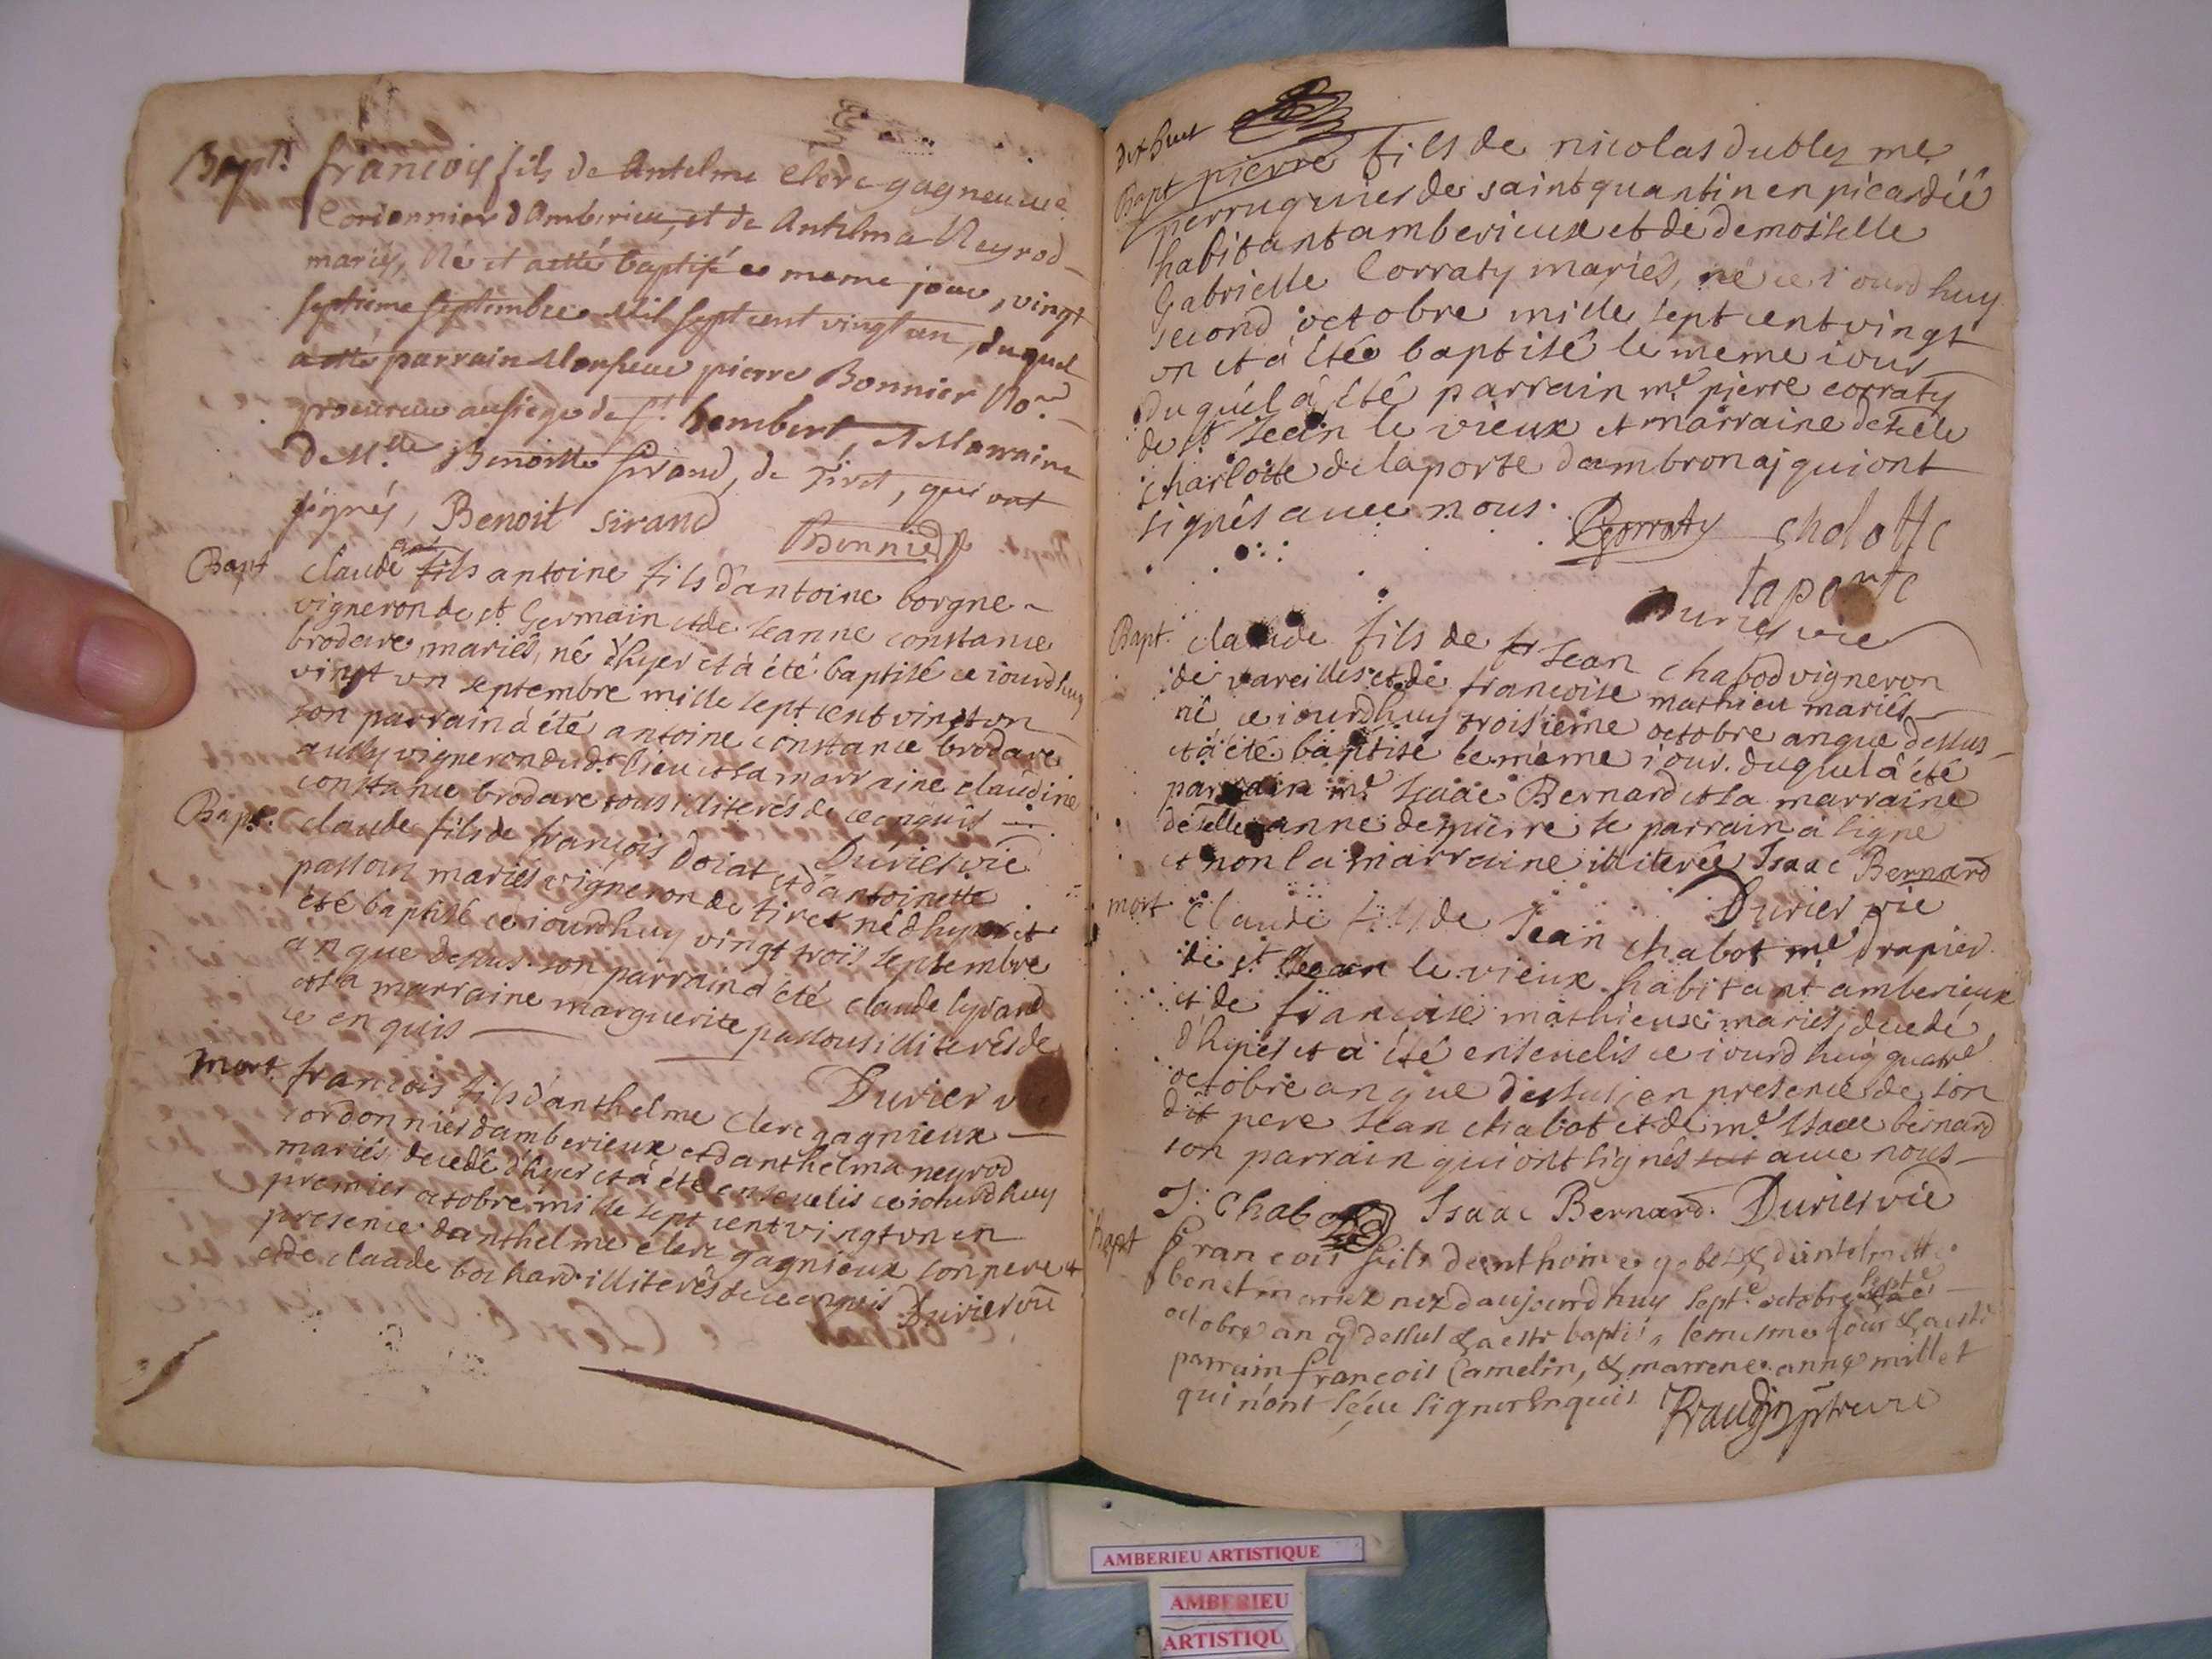 Bapt. francois fils de Antelme Clerc gagneue
Cordonnier d'Amberieu, et de Antelma Neyrod
mariés, Né et a etté baptisé ce meme jour, vingt
septieme septembre Mil sept cent vingt un, duquel
a etté parrain Monsieur pierre Bonnier No.re
procureur au siege de st. hembert, et Marraine
de M.elle Benoitte Sirand, de Tiret, qui ont
signés, Benoit sirand Bonnier
Bapt claude fils antoine fils d'antoine borgne
vigneron de st Germain et de Jeanne constance
brodare mariés, né d'hyer et à été baptisé ce iourdhuy
vingt un septembre mille sept cent vingt un
son parrain à été antoine constance brodare
aussy vigneron dudt lieu et sa marraine claudine
constance brodare tous illiterés de ce enquis
Durier vic
Bapt. claude fils de françois Doiat et d'antoinette
passour mariés vigneron de tiret né d'hyer et
été baptisé ce iourdhuy vingt trois septembre
an que dessus. son parrain à été claude syrand
et sa marraine marguerite passour illiterés de
ce enquis
Durier
mort. francois fils d'anthelme Clerc gagnieux
cordonnier damberieux et danthelma neyrod
mariés, decedé d'hyer et à été ensevelis ce iourdhuy
premier octobre mille sept cent vingt un en
presence danthelme clerc gagnieux son pere et
et de claude bochard illiterés de ce enquis Durier vic
Dix huit
Bapt pierre fils de nicolas dubles me
perruquier de saint quantin en picardie
habitant amberieux et de demoiselle
Gabrielle Corraty mariés, né ce iourdhuy
second octobre mille sept cent vingt
un et à étée baptisé le meme iour
duquel à été parrain me pierre corraty
de st Jean le vieux et marraine deselle
charlotte de laporte dambronaj qui ont
signés avec nous. Corraty cholotte
laporte
Durier vic
Bapt. claude fils de Jean chabod vigneron
de vareilles et de francoise mathieu mariés
né ce iourdhuy troisieme octobre an que dessus
et à été baptisé le meme iour. duquel à été
parrain me Isaac Bernard et sa marraine
deselle anne depierre le parrain à signé
et non la marraine illiterée Isaac Bernard
Durier vic
mort Claude fils de Jean chabot me Drapier
de st Jean le vieux habitant amberieux
et de francoise mathieux mariés, decedé
d'hyer et à été ensevelis ce iourdhuy quatre
octobre an que dessus, en presence de son
dit pere Jean chabot et de me Isaac bernard
son parrain qui ont signés avec nous
J: Chabot Isaac Bernard. Durier vic
bapt Francois fils
benet mariez nez daujourdhuy sept.e octobre sept.e
octobre an q dessus & a esté baptisé lemesme jour & a esté
parrain francois Camelin, & marrene anne millet
qui n'ont sçeu signer Enquis